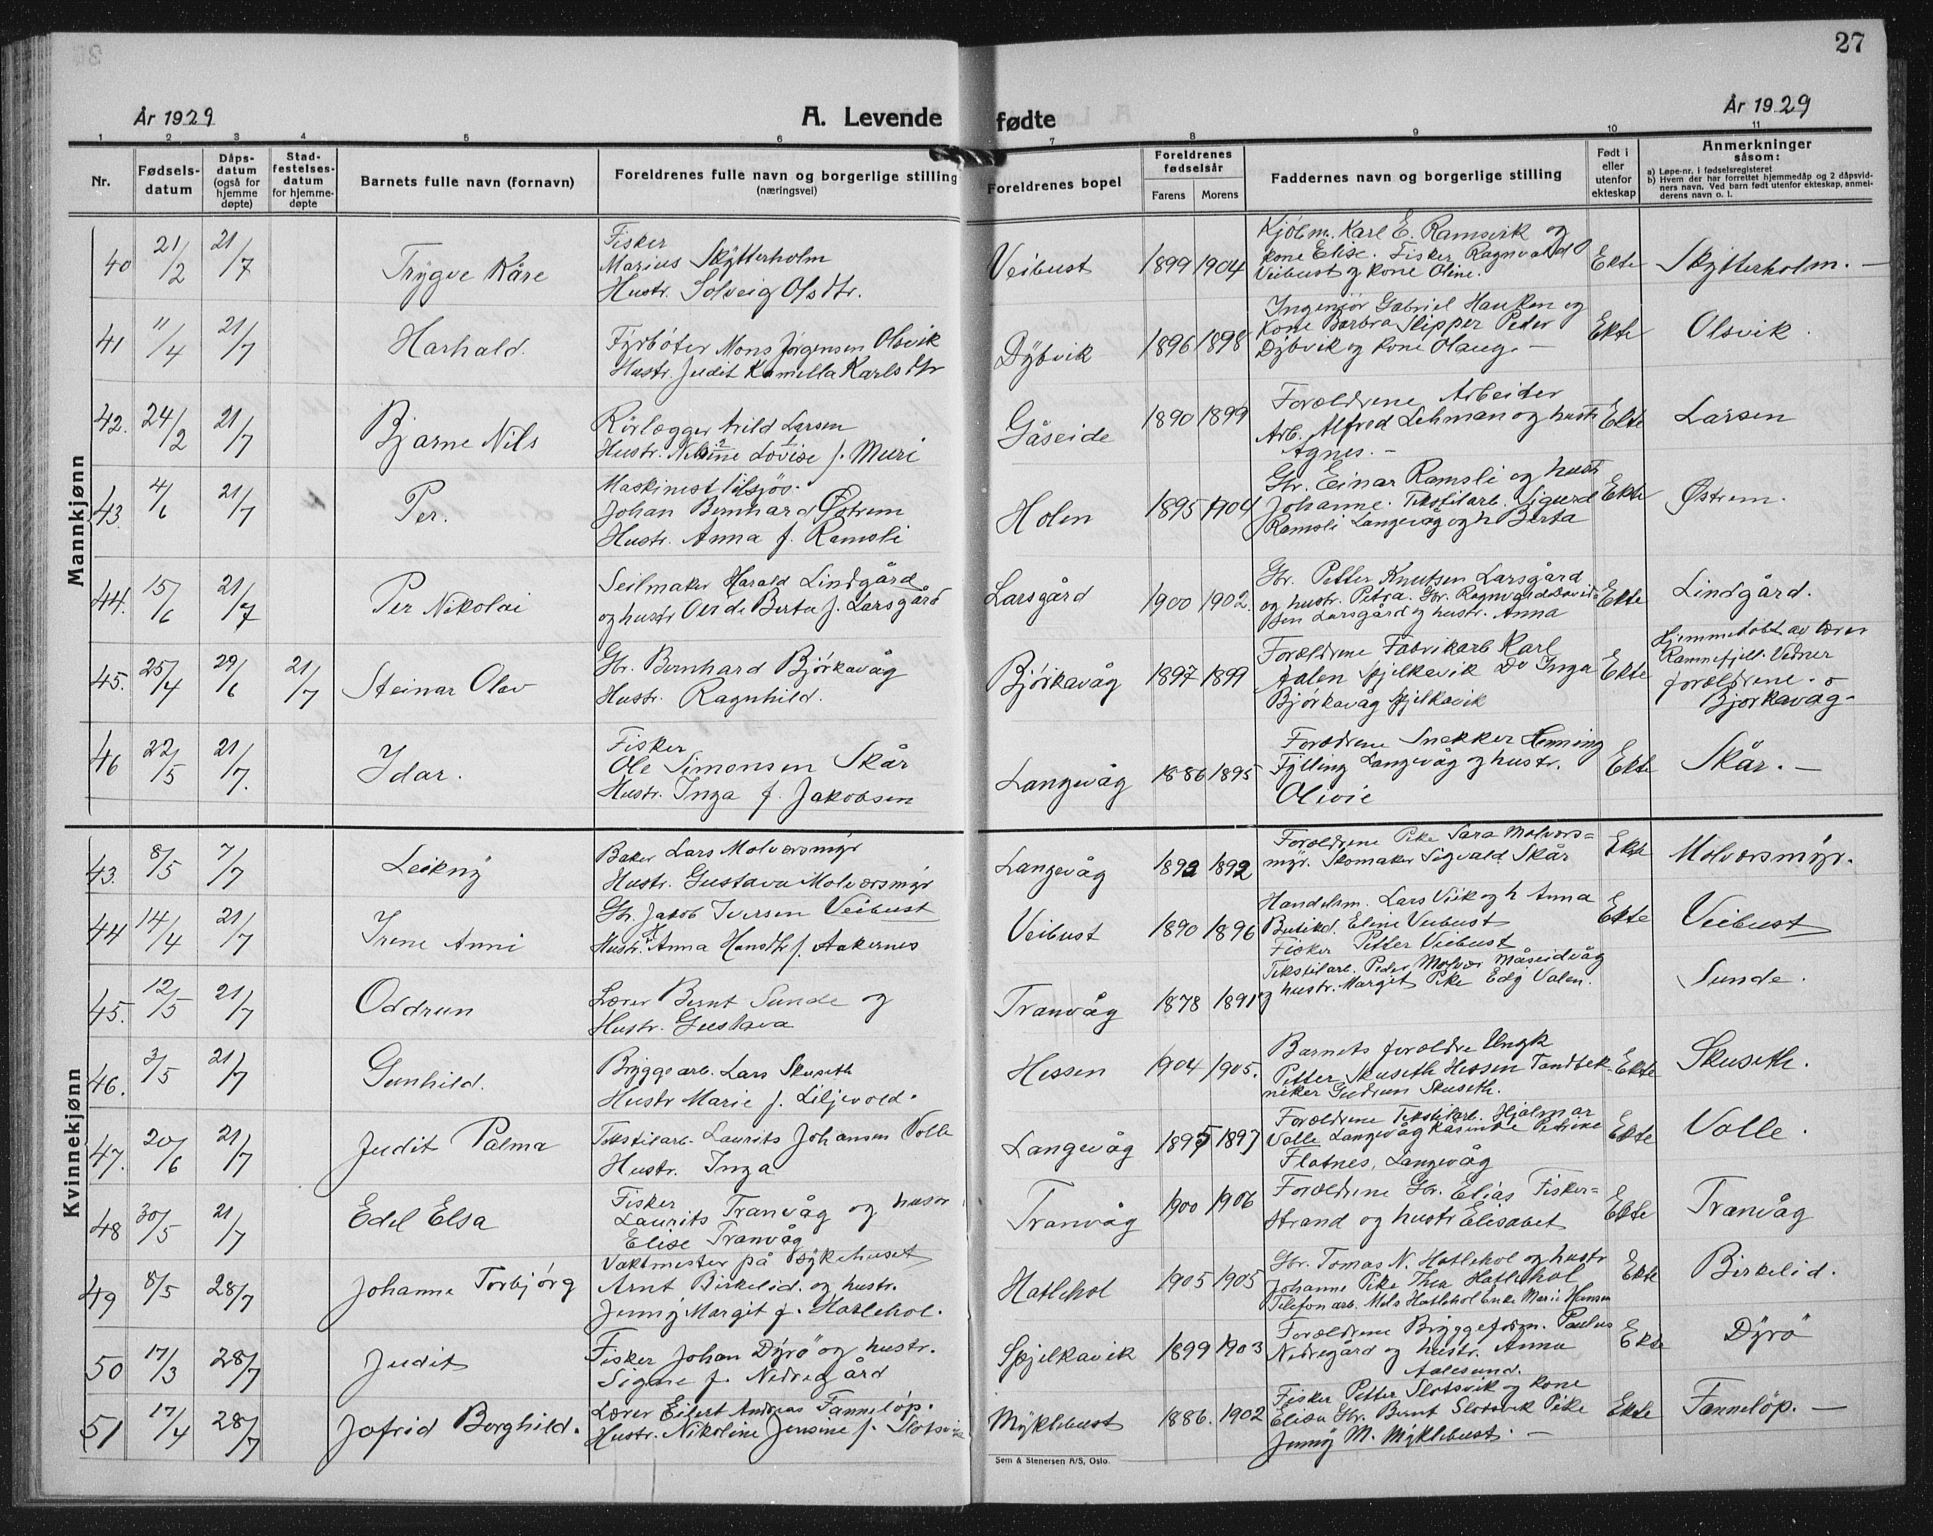 27
År 1929
A. Levende fødte
År 1929
1 2 3 4 5 6 7 8 9 10 11
Nr.
Fødsels-
datum
Dåps-
datum
(også for
hjemme
døpte)
Stad-
festelses-
datum
for hjemme-
døpte
Barnets fulle navn (fornavn)
Foreldrenes fulle navn og borgerlige stilling
(næringsvei)
Foreldrenes bopel
Foreldrenes
fødselsår
Farens Morens
Faddernes navn og borgerlige stilling
Født i
eller
utenfor
ekteskap
Anmerkninger
såsom:
a) Løpe-nr. i fødselsregisteret
b) Hvem der har forrettet hjemmedåp og 2 dåpsvid-
ners navn. Ved barn født utenfor ekteskap, anmel-
derens navn o. l.
Mannkjønn
40 21/2 21/7 Trygve Kåre
Fisker
Marius Skytterholm
Hustr. Solveig Olsdtr.
Veibust 1899 1904
Kjøbm. Karl E. Ramsvik og
kone Elise. Fisker Ragnvald O
Veibust og kone Oline.
Ekte Skytterholm. —
41 11/4 21/7 Harhald.
Fyrbøter Mons Jørgensen Olsvik
Hustr. Judit Kamella Karlsdtr
Dybvik 1896 1898
Ingeniør Gabriel Hauken og
Kone Barbra Skipper Peder
Dybvik og kone Olaug. —
Ekte Olsvik.
42. 24/2 21/7 Bjarne Nils
Rørlegger Arild Larsen
Hustr. Nelsine Lovise f. Muri
Gåseide 1890 1899
Forældrene Arbeider
Arb. Alfred Lehman og hustr
Agnes. —
Ekte Larsen
43. 4/6 21/7 Per.
Maskinist tilsjøs.
Johan Bernhard Østrem
Hustr. Anna f. Ramsli
Holen 1895 1904
Gbr. Einar Ramsli og hustr
Johanne. Tekstilarb. Sigurd
Ramsli Langevåg og h Berta
Ekte Østrem.
44. 15/6 21/7 Per Nikolai
Seilmaker Harald Lindgård
og hustr Ovide Berta f. Larsgård
Larsgård 1900 1902.
Gbr. Petter Knutsen Larsgård
og hustr. Petra. Gbr. Ragnvald David-
sen Larsgård og hustr. Anna
Ekte Lindgård.
45. 25/4 29/6 21/7 Steinar Olav
Gbr. Bernhard Bjørkavåg
Hustr. Ragnhild.
Bjørkavåg 1897 1899
Forældrene Fabrikarb Karl
Aalen Spjelkavik Do Inga
Bjørkavåg Spjelkavik
Ekte
Hjemmedøbt av lærer
Rammefjell. Vidner
forældrene. o
Bjørkavåg —
46 22/5 21/7. Idar.
Fisker
Ole Simonsen Skår
Hustr. Inga f. Jakobsen
Langevåg 1886 1895
Forældrene Snekker Henning
Fylling Langevåg og hustr.
Olivie
Ekte Skår. —
Kvinnekjønn
43. 8/5 7/7 Leikny
Baker Lars Molværsmyr
Hustr. Gustava Molværsmyr
Langevåg 1892 1892
Forældrene Pike Sara Molværs=
myr. Skomaker Sigvald Skår
Ekte Molværsmyr.
44 14/4 21/7 Irene Anni
Gbr. Jakob Iversen Veibust
Hustr. Anna Hansdtr f. Aakernes
Veibust 1890 1896
Handelsm. Lars Viik og h Anna
Butikd. Eline Veibust
Fisker Petter Veibust
Ekte Veibust
45. 12/5 21/7 Oddrun
Lærer Bernt Sunde og
Hustr. Gustava
Tranvåg 1878 1891
Tekstilarb. Peder Molvær Måseidvåg
og hustr. Margit Pike Edg Valen.
Sunde.
46. 3/5 21/7 Gunhild.
Bryggearb. Lars Skuseth
Hustr Marie f. Liljevold.
Hessen 1904 1905.
Barnets forældre Ungk
Petter Skuseth Hessen Tandtek-
niker Gudrun Skuseth.
Ekte Skuseth.
47. 20/6 21/7 Judit Palma
Tekstilarb. Laurits Johansen Volle
Hustr. Inga
Langevåg 1895 1897
Forældrene Tekstilarb. Hjalmar
Volle Langevåg Petrine
Flatnes, Langevåg
Ekte Volle.
48 30/5 21/7 Edel Elsa
Fisker
Laurits Tranvåg og hustr
Elise Tranvåg
Tranvåg 1900 1906
Forældrene Gbr. Elias Fisker=
strand og hustr Elisabet
Ekte Tranvåg
49 8/5 28/7 Johanne Torbjørg
Vaktmester på Sykehuset
Arnt Birkelid. og hustr.
Jenny Margit f. Hatlehol.
Hatlehol 1905 1905
Gbr. Tomas N. Hatlehol og hustr
Johanne Pike Thea Hatlehol
Telefonarb. Mels Hatlehol Enke Marie Hansen
Ekte Birkelid.
50 17/3 28/7 Judit
Fisker Johan Dyrø og hustr.
Signe f. Nedregård
Spjelkavik 1899 1903
Forældrene Bryggeform. Paulus
Nedregård og hustr. Anna
Aalesund.
Ekte Dyrø
51 17/4 28/7 Jofrid Borghild.
Lærer Eilert Andreas Fanneløp.
Hustr. Nikoline Jensine f. Slotsvik
Myklebust 1886. 1902
Fisker Petter Slotsvik og kone
Elisa Gbr. Bernt Slotsvik Pike
Jenny M. Myklebust. —
Ekte Fanneløp. —
Sem & Stenersen A/S, Oslo.